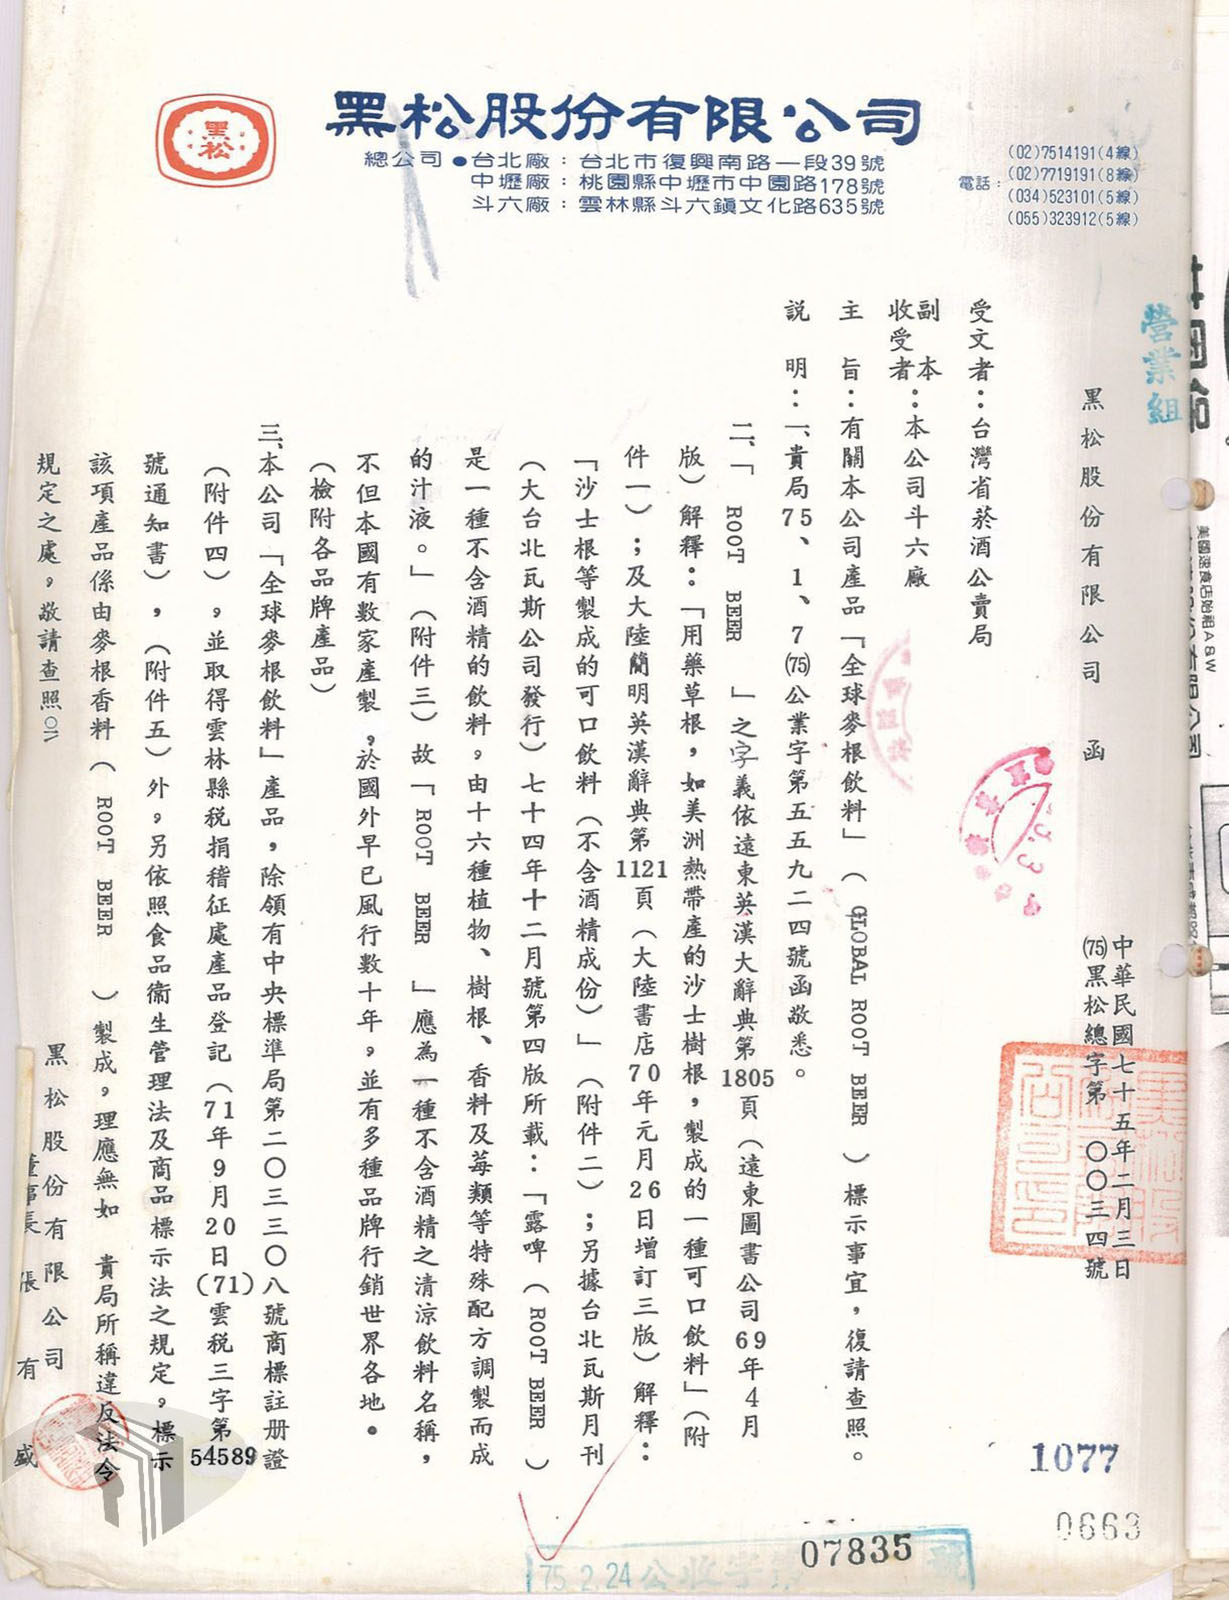 黑松
黑松股份有限公司
總公司●台北廠：台北市復興南路一段39號
中壢廠：桃園縣中壢市中園路178號
斗六廠：雲林縣斗六鎮文化路635號
電話：
(02)7514191(4線)
(02)7719191(8線)
(034)523101(5線)
(055)323912(5線)
營業組
黑松股份有限公司 函
中華民國七十五年二月三日
(75)黑松總字第 〇〇三四號
受文者：台灣省菸酒公賣局
副本
收受者：本公司斗六廠
主 旨：有關本公司產品「全球麥根飲料」（GLOBAL ROOT BEER）標示事宜，復請查照。
說 明：一、貴局75、1、7(75)公業字第五五九二四號函敬悉。
二、「ROOT BEER」之字義依遠東英漢大辭典第1805頁（遠東圖書公司69年4月
版）解釋：「用藥草根，如美洲熱帶產的沙士樹根，製成的一種可口飲料」（附
件一）；及大陸簡明英漢辭典第1121頁（大陸書店70年元月26日增訂三版）解釋：
「沙士根等製成的可口飲料（不含酒精成份）」（附件二）；另據台北瓦斯月刊
（大台北瓦斯公司發行）七十四年十二月號第四版所載：「露啤（ROOT BEER）
是一種不含酒精的飲料，由十六種植物、樹根、香料及莓類等特殊配方調製而成
的汁液。」（附件三）故「ROOT BEER」應為一種不含酒精之清涼飲料名稱，
不但本國有數家產製，於國外早已風行數十年，並有多種品牌行銷世界各地。
（檢附各品牌產品）
三、本公司「全球麥根飲料」產品，除領有中央標準局第二〇三三〇八號商標註册證
（附件四），並取得雲林縣稅捐稽征處產品登記（71年9月20日(71)雲稅三字第54589
號通知書），（附件五）外，另依照食品衞生管理法及商品標示法之規定，標示
該項產品係由麥根香料（ROOT BEER）製成，理應無如 貴局所稱違反法令
規定之處，敬請查照。
黑松股份有限公司
董事長 張有盛
1077
0663
07835
75.2.24公收字第 號
美國速食店始祖A&W